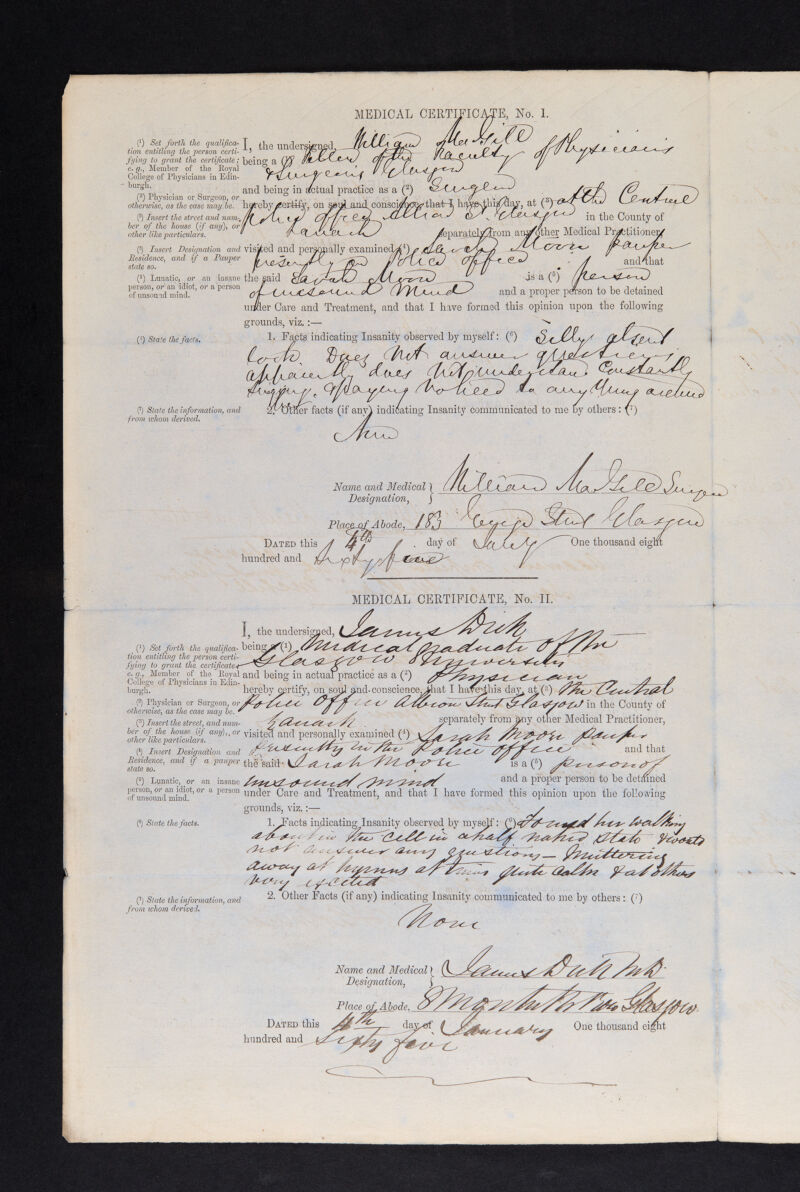 MEDICAL CERTIFICATE, No. I.
(1) Set forth the qualifica-
tion entitling the person certi-
fying to grant the certificate;
e.g., Member of the Royal
College of Physicians in Edin-
burgh.
(2) Physician or Surgeon, or
otherwise, as the case may be.
(3) Insert the street and num-
ber of the house (if any), or
other like particulars.
(4) Insert Designation and
Residence, and if a Pauper
state so.
(5) Lunatic, or an insane
person, or an idiot, or a person
of unsound mind.
(6) State the facts.
(7) State the information, and
from whom derived.
I, the undersigned, William MacGill
being a (1) Fellow of the Faculty of Physicians
& Surgeons Glasgow
and being in actual practice as a (2) Surgeon
hereby certify, on soul and conscience, that I have this day, at (3) at the Central
Police Office Albion St. Glasgow in the County of
Lanark separately from any other Medical Practitioner,
visited and personally examined (4) Sarah Moon pauper
presently in Police office and that
the said Sarah Moon is a (5) person
of unsound mind and a proper person to be detained
under Care and Treatment, and that I have formed this opinion upon the following
grounds, viz.:—
1. Facts indicating Insanity observed by myself: (6) Silly absent
look. Does not answer questions,
apparently does not understand Constantly
singing, & paying no heed to anything around
her
2. Other facts (if any) indicating Insanity communicated to me by others: (7)
None
Name and Medical Designation, William MacGill Surgeon
Place of Abode, 183 George Street Glasgow
DATED this 4th day of One thousand eight
hundred and Sixty five
MEDICAL CERTIFICATE, No. II.
(1) Set forth the qualifica-
tion entitling the person certi-
fying to grant the certificate;
e.g., Member of the Royal
College of Physicians in Edin-
burgh.
(2) Physician or Surgeon, or
otherwise, as the case may be.
(3) Insert the street, and num-
ber of the house (if any), or
other like particulars.
(4) Insert Designation and
Residence, and if a pauper
state so.
(5) Lunatic, or an insane
person, or an idiot, or a person
of unsound mind.
(6) State the facts.
(7) State the information, and
from whom derived.
I, the undersigned, James Dick
being a (1) Medical Graduate of the
Glasgow University
and being in actual practice as a (2) Physician
hereby certify, on soul and conscience, that I have this day, at (3) the Central
Police Office Albion Street Glasgow in the County of
Lanark separately from any other Medical Practitioner,
visited and personally examined (4) Sarah Moon pauper
presently in the Police office and that
the said Sarah Moon is a (5) person of
unsound mind and a proper person to be detained
under Care and Treatment, and that I have formed this opinion upon the following
grounds, viz.:—
1. Facts indicating Insanity observed by myself: (6) Found her walking
about in the cell in a half naked state & would
not answer any questions — Muttering
away at hymns at times quite calm & at others
very excited
2. Other Facts (if any) indicating Insanity communicated to me by others: (7)
None
Name and Medical Designation, James Dick M.D.
Place of Abode, 8 Monteith Row Glasgow
DATED this 4th day of January One thousand eight
hundred and Sixty five